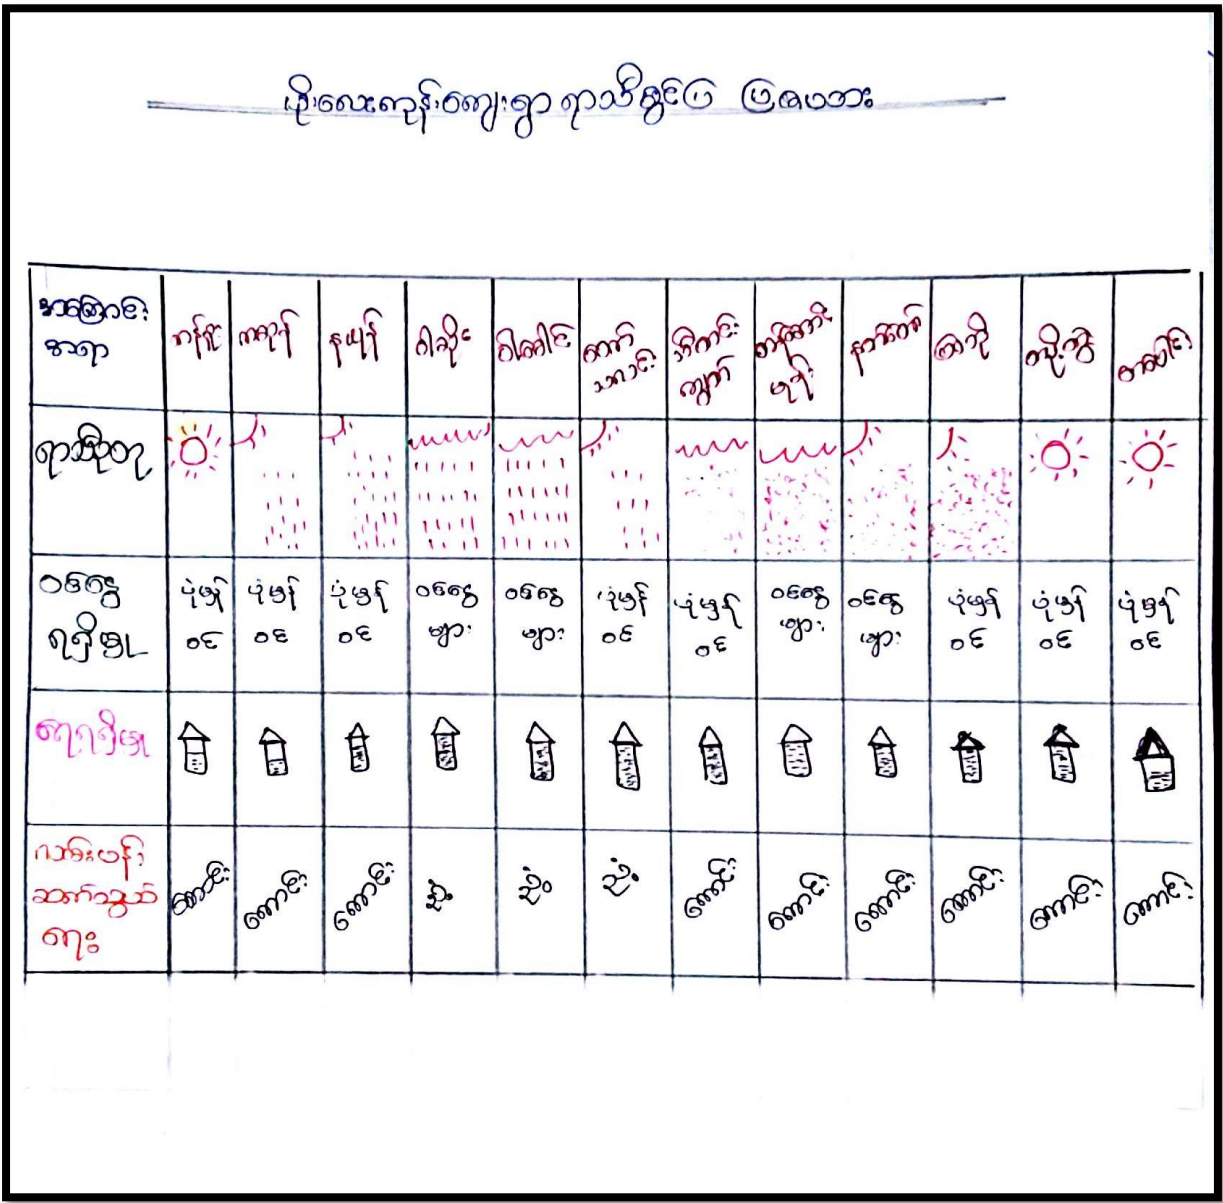 ပိုးလေးကုန်းကျေးရွာ ရာသီခွင်ပြ ပြဇယား
အကြောင်း
အရာ
တန်ခူး
ကဆုန်
နယုန်
ဝါဆို
ဝါခေါင်
တော်
သလင်း
သီတင်း
ကျွတ်
တန်ဆောင်
မုန်း
နတ်တော်
ပြာသို
တပို့တွဲ
တပေါင်း
ရာသီဥတု
ဝင်ငွေ
ရရှိမှု
ပုံမှန်
ဝင်
ပုံမှန်
ဝင်
ပုံမှန်
ဝင်
ဝင်ငွေ
များ
ဝင်ငွေ
များ
ပုံမှန်
ဝင်
ပုံမှန်
ဝင်
ဝင်ငွေ
များ
ဝင်ငွေ
များ
ပုံမှန်
ဝင်
ပုံမှန်
ဝင်
ပုံမှန်
ဝင်
ရေရရှိမှု
လမ်းပန်း
ဆက်သွယ်
ရေး
ကောင်း
ကောင်း
ကောင်း
ညံ့
ညံ့
ညံ့
ကောင်း
ကောင်း
ကောင်း
ကောင်း
ကောင်း
ကောင်း